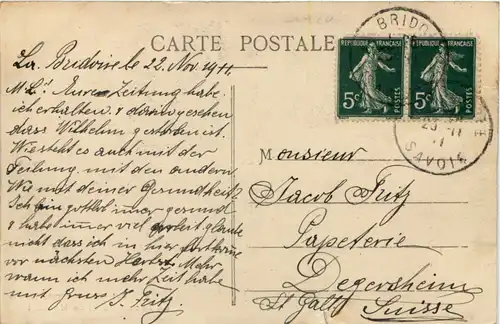 CARTE POSTALE
La Bridoire le 22. Nov. 1911.
M. L! Eure Zeitung habe
ich erhalten & darin gesehen
dass Wilhelm gestorben ist.
Wie steht es auch mit der
Teilung mit den andern.
Wie mit deiner Gesundheit?
Ich bin gottlob immer gesund
& habe immer viel glaube
nicht dass ich in hier fortkomme
vor nächsten Herbst. Mehr
wann ich mehr Zeit habe
mit Gruss J. Fritz
REPUBLIQUE FRANÇAISE
5c POSTES
REPUBLIQUE FRANÇAISE
5c POSTES
BRIDO
23 - 11
SAVOIE
Monsieur
Jacob Fritz
Papeterie
Degersheim
St Gall
Suisse